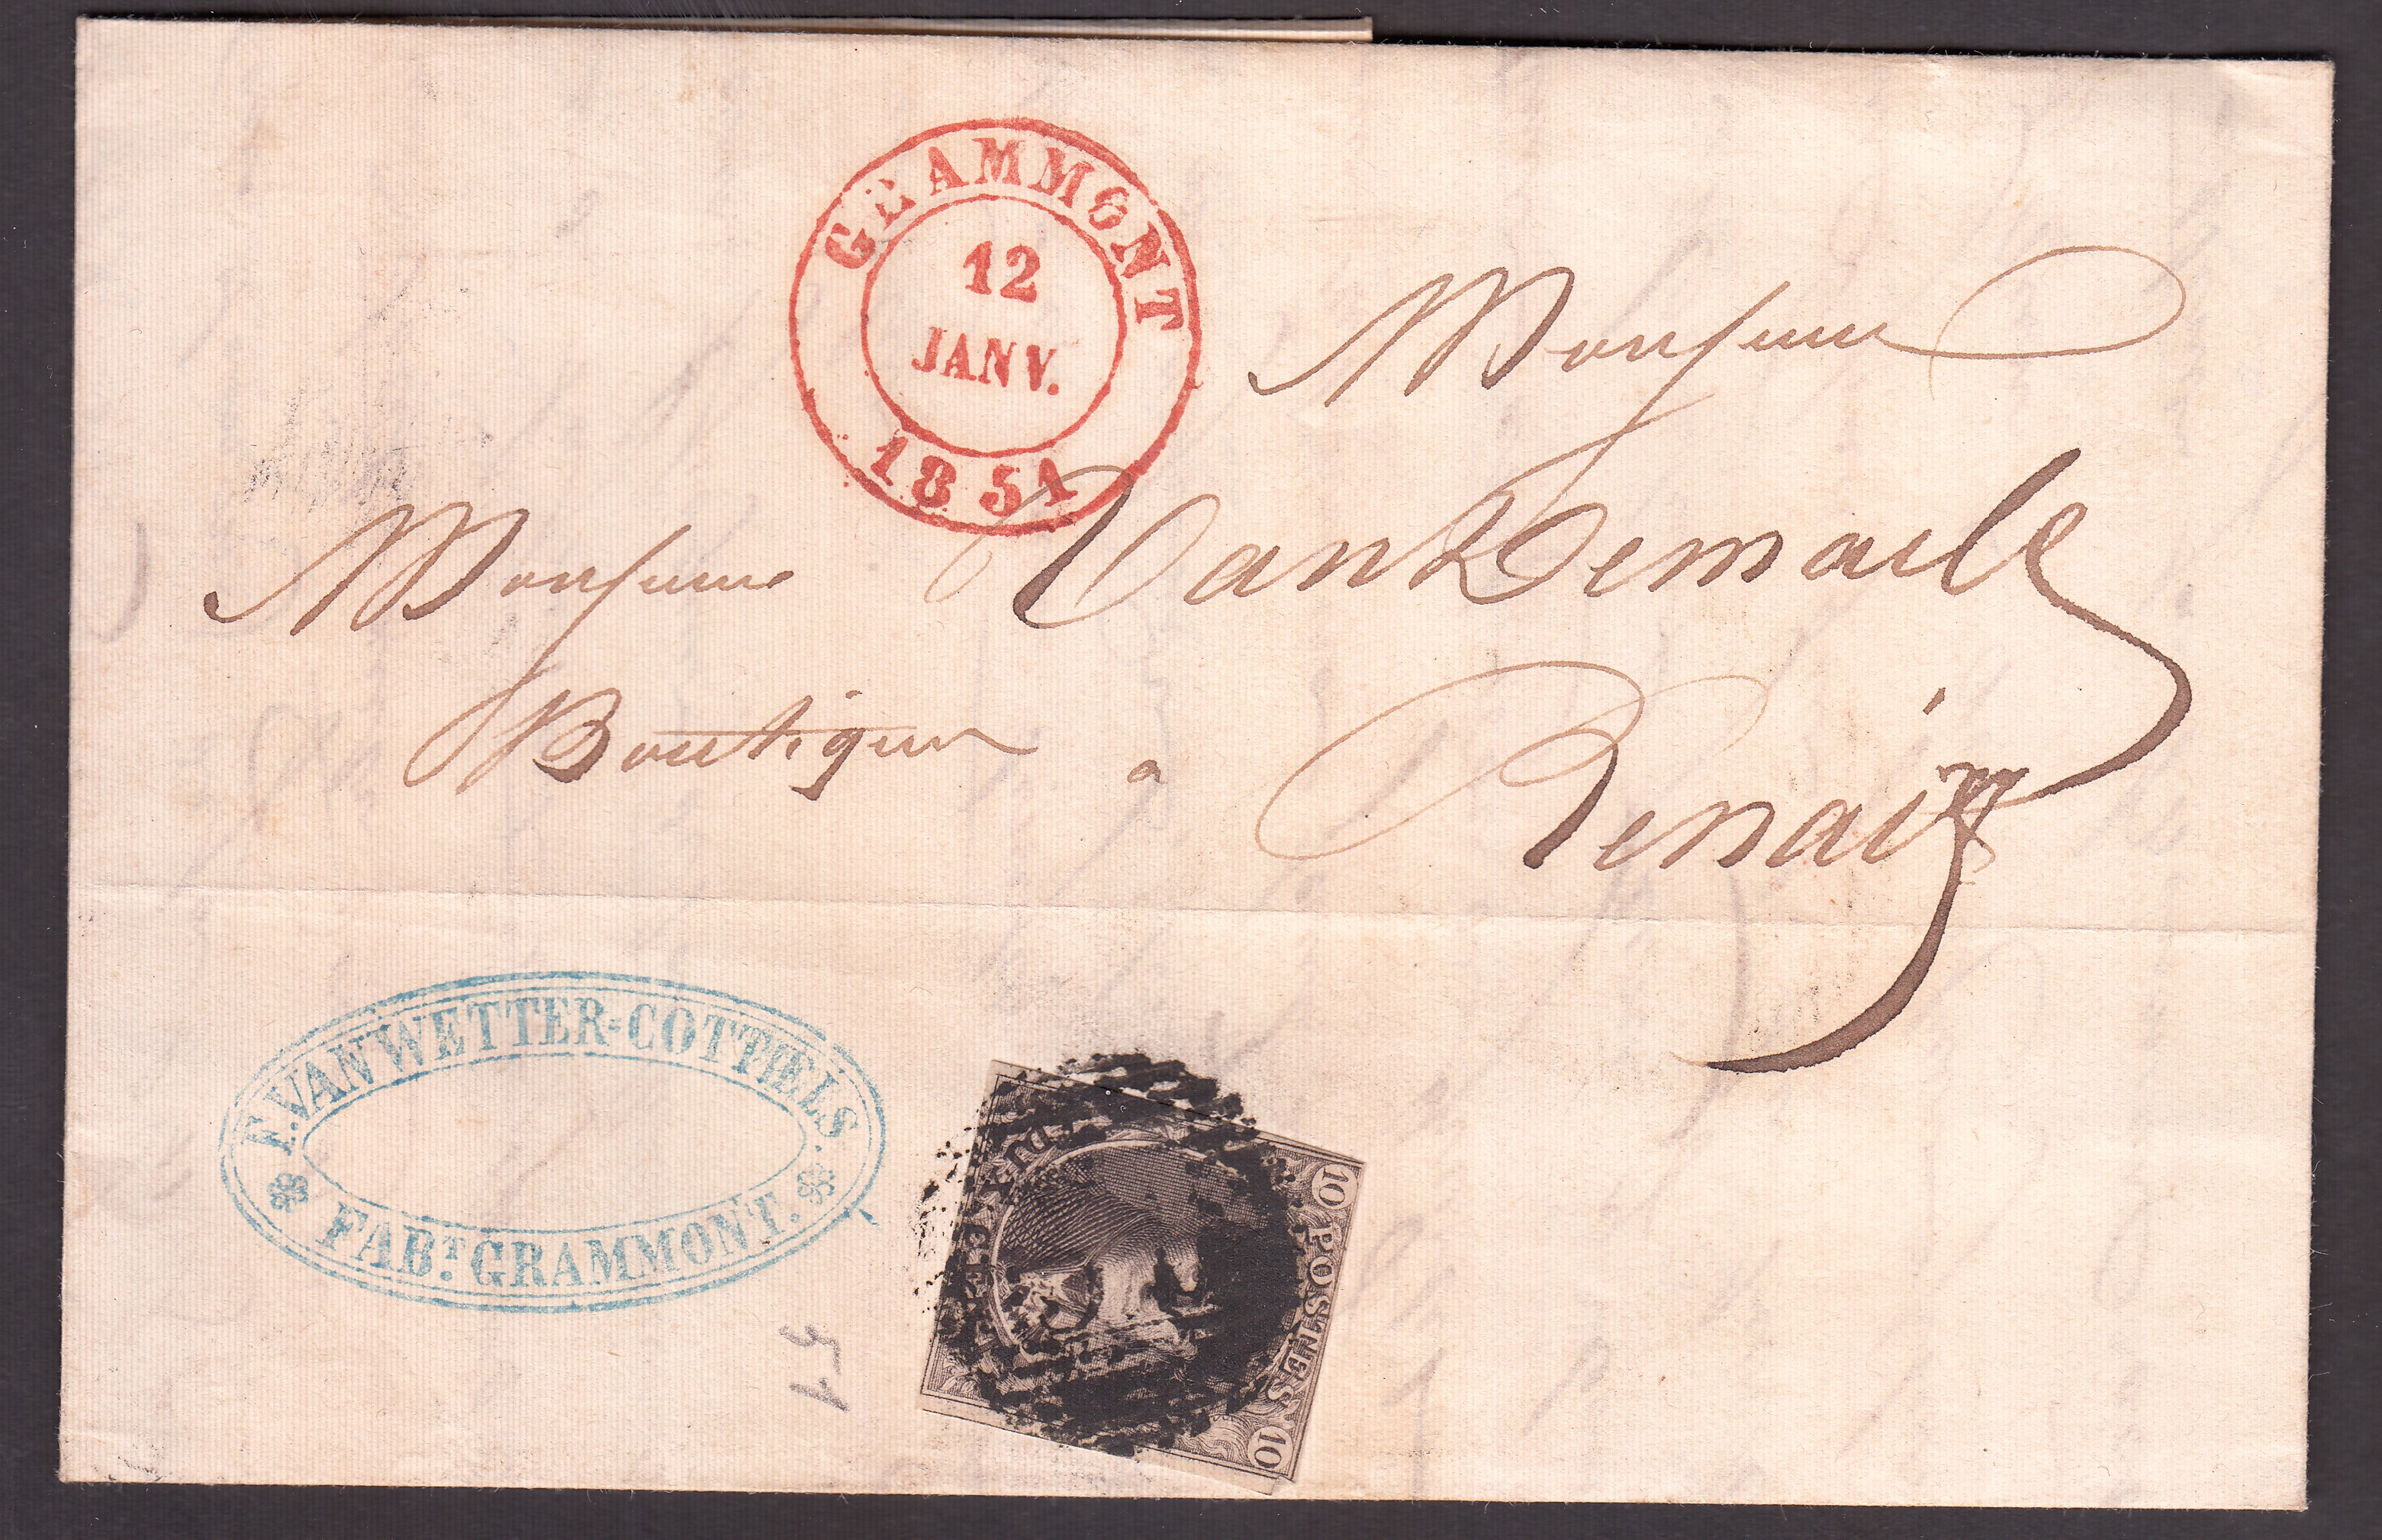 GRAMMONT
12
JANV.
1851
Monsieur
Monsieur VanDemaele
Boutiquier a Renaix
F. VANWETTER-COTTIELS.
FABT. GRAMMONT.
10 POSTES 10